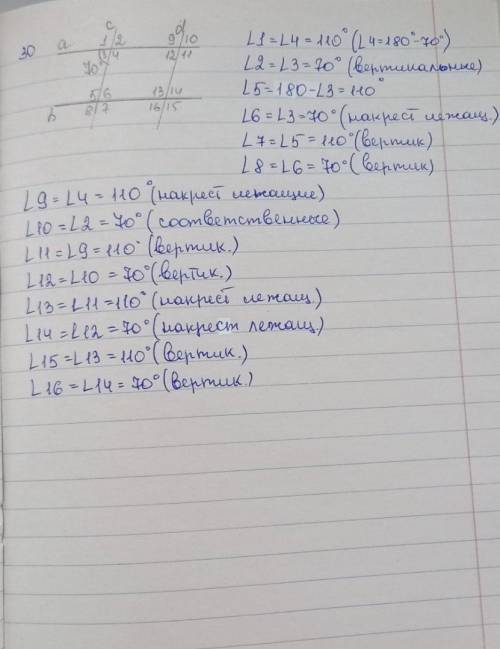 30
a
c
d
1/2
9/10
3/4
12/11
70°
5/6
13/14
b
8/7
16/15
∠1 = ∠4 = 110° (∠4 = 180° - 70°)
∠2 = ∠3 = 70° (вертикальные)
∠5 = 180 - ∠3 = 110°
∠6 = ∠3 = 70° (накрест лежащ.)
∠7 = ∠5 = 110° (вертик)
∠8 = ∠6 = 70° (вертик)
∠9 = ∠4 = 110° (накрест лежащие)
∠10 = ∠2 = 70° (соответственные)
∠11 = ∠9 = 110° (вертик.)
∠12 = ∠10 = 70° (вертик.)
∠13 = ∠11 = 110° (накрест лежащ.)
∠14 = ∠12 = 70° (накрест лежащ.)
∠15 = ∠13 = 110° (вертик.)
∠16 = ∠14 = 70° (вертик.)